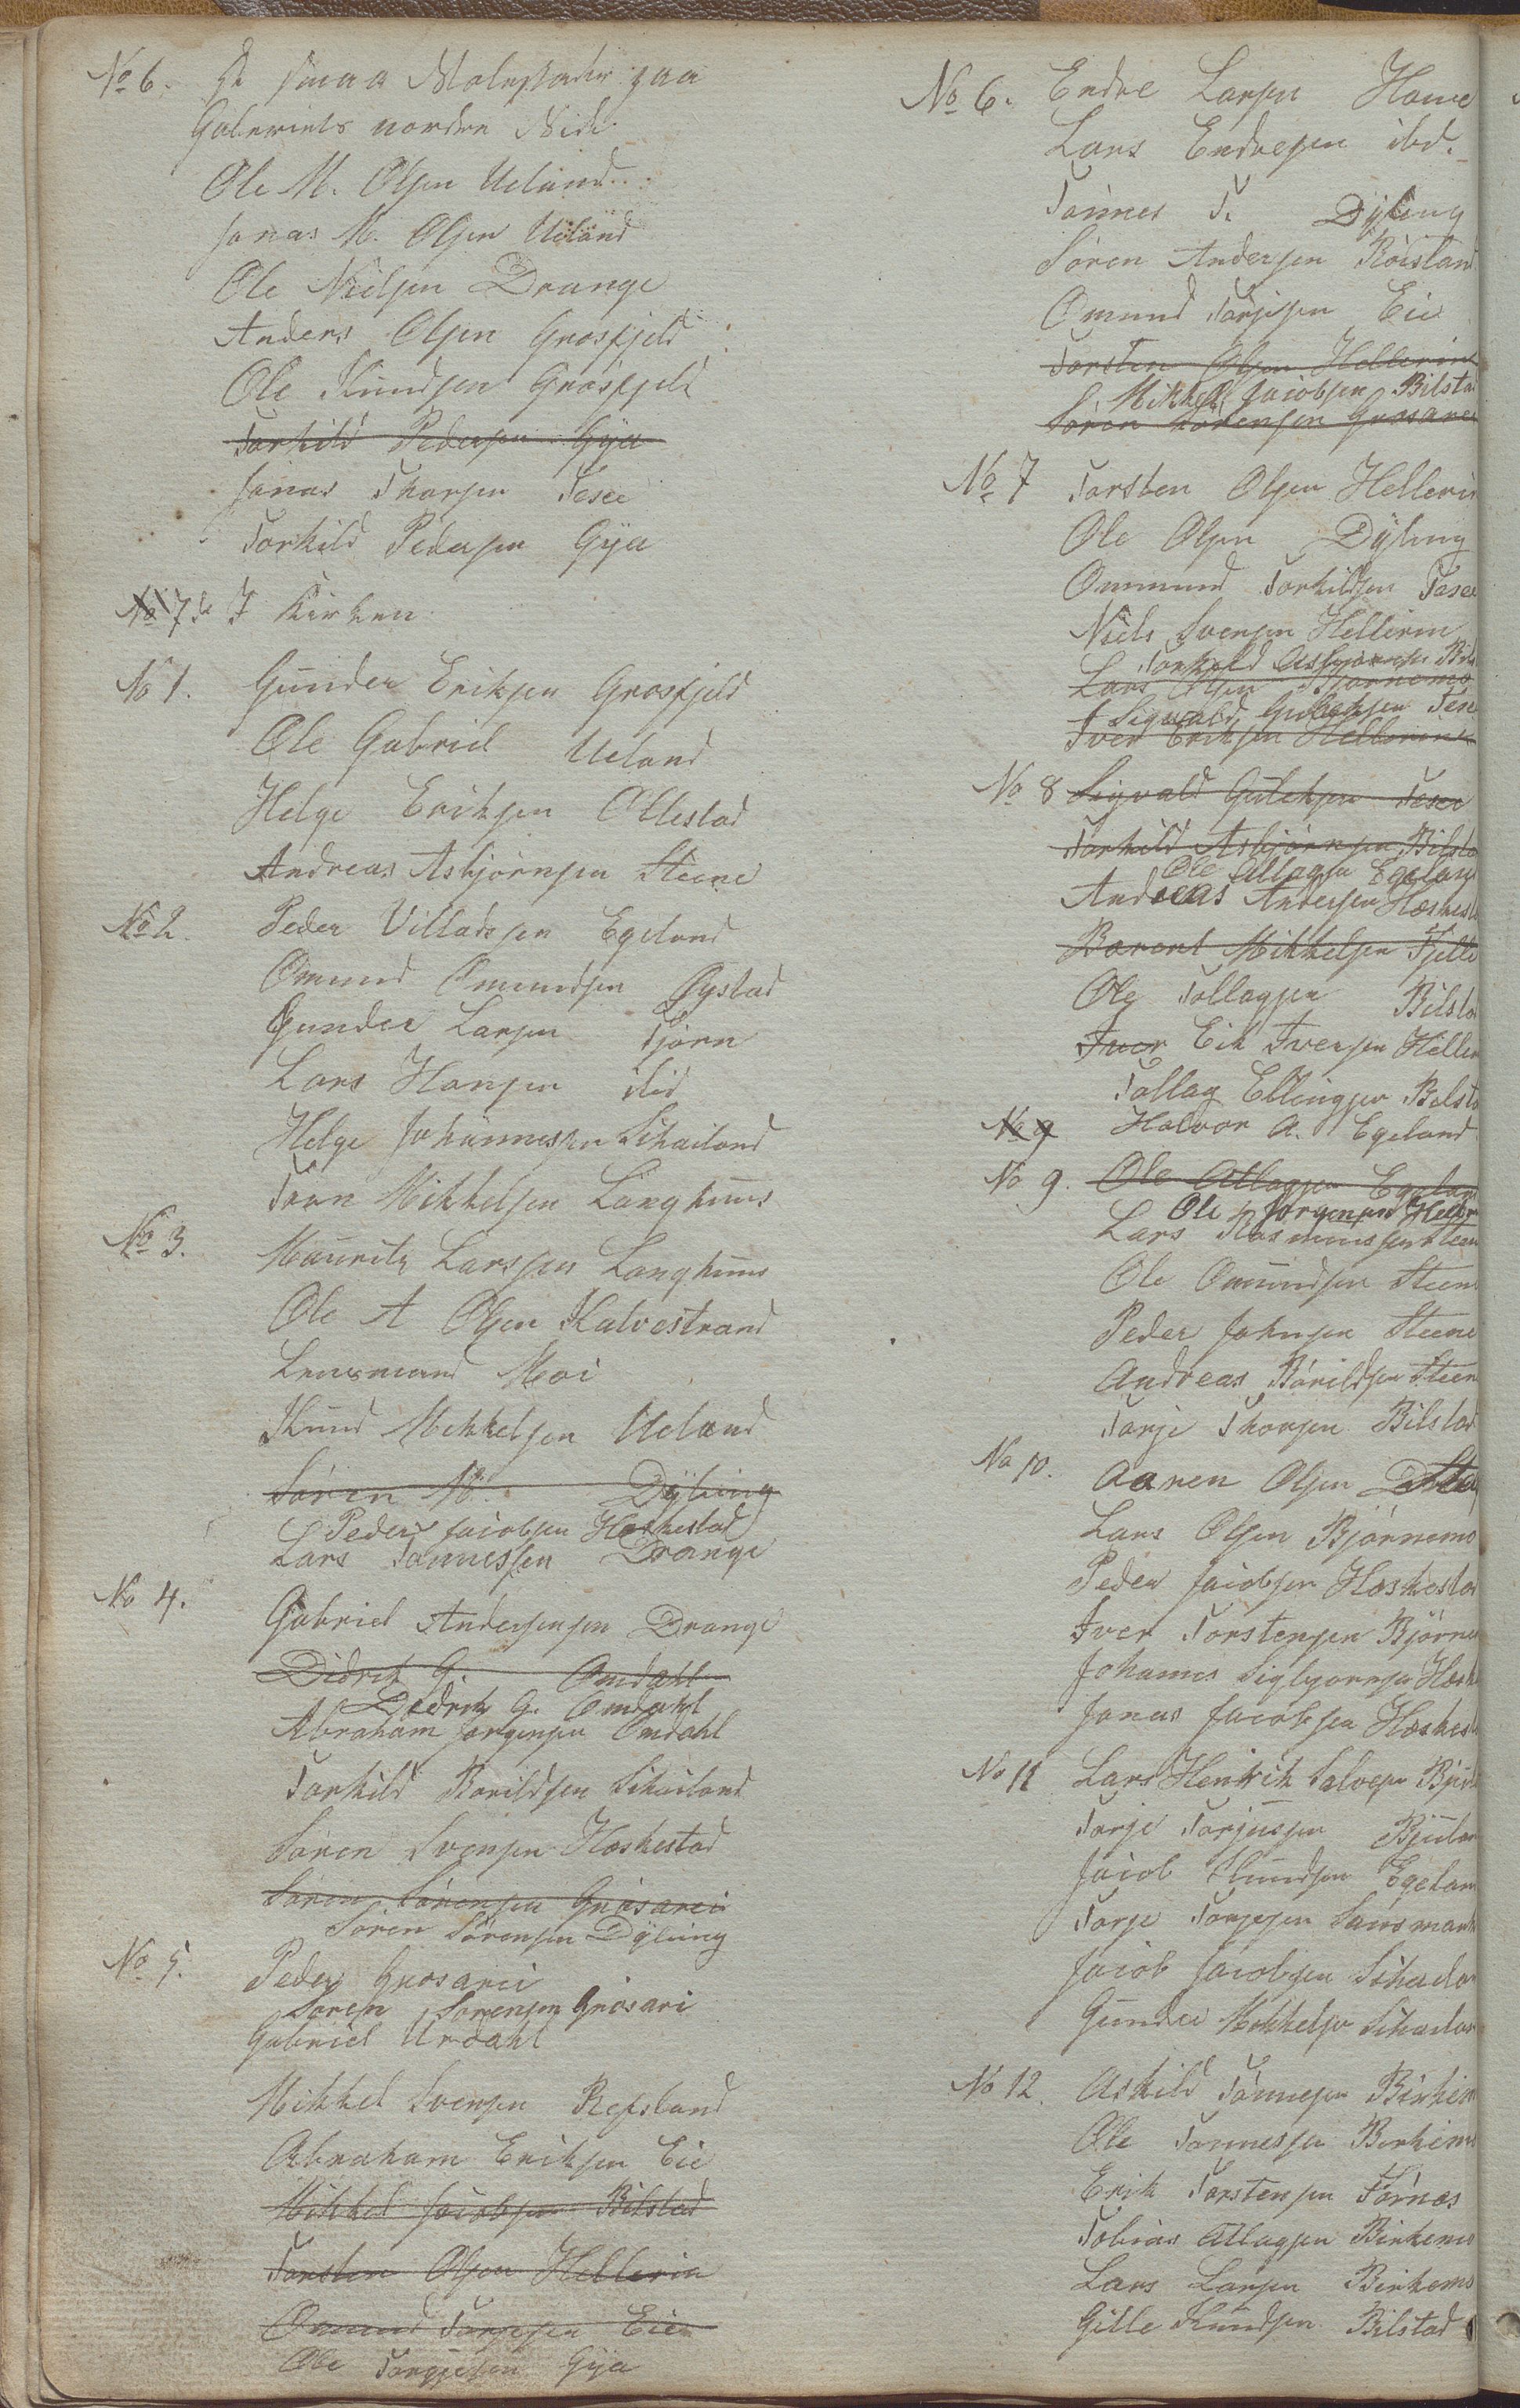 No 6. De smaa
Gabriels nordre Side
Ole M. Olsen Ueland
Jonas M. Olsen Ueland
Ole Nielsen Drange
Anders Olsen Grosfjeld
Ole Knudsen Grosfjeld
Torkild Pedersen Gya
Jonas Thorsen Tesee
Torkild Pedersen Gya
No 7de I Kirken
No 1. Gunder Eriksen Grosfjeld
Ole Gabriel Ueland
Helge Eriksen Ollestad
Andreas Asbjørnsen Steene
No 2. Peder Villadssen Egeland
Omund Omundsen Øystad
Gunder Larsen Tjørn
Lars Hansen ibid
Helge Johannessen Skailand
Tron Mikkelsen Langhuus
No 3. Mauritz Larssen Langhuus
Ole A Olsen Kalvestrand
Lensmand Moi
Knud Mikkelsen Ueland
Søren M. Dÿbing
Peder Jacobsen Heskestad
Lars Tønnessen Drange
No 4. Gabriel Andersensen Drange
Didrik G. Omdahl
Didrik G. Omdahl
Abraham Jørgensen Omdahl
Torkild Borildsen Skailand
Søren Svensen Heskestad
Søren Sørensen Grøsarei
Søren Sørensen Dÿbing
No 5. Peder Grøsarei
Søren Sørensen Grøsari
Gabriel Urdahl
Mikkel Svensen Refsland
Abraham Eriksen Eie
Mikkel Jacobsen Bilstad
Torsten Olsen Helleren
Omund Torgesen Eie
Ole Torgiesen Gÿa
No 6. Endre Larsen Hove
Lars Endresen ibd.
Tønnes T. Dÿbing
Søren Andersen Røisland
Omund Torjesen Eie
Torsten Olsen Helleren
Mikkel Jacobsen Bilsta
Søren Sørensen Grøsarei
No 7 Torsten Olsen Hellerin
Ole Olsen Dÿbing
Ommund Torkildsen Tesee
Niels Svensen Helleren
Torkild Asbjørnsen Bils
Lars Olsen Bjørnemo
Sigvald Gulleksen Tese
Iver Eriksen Helleren
No 8 Sigvald Gulleksen Tesee
Torkild Asbjørnsen Bilsta
Ole Atlagsen Egeland
Andreas Andersen Heskest
Barent Mikkelsen Fjelle
Ole Tollagsen Bilsta
Iver Eik Iversen Heller
Tollag Ellingsen Bilsta
No 9 Halvor A. Egeland
No 9. Ole Atlagsen Egelan
Ole Jørgensen Heller
Lars Rasmussen Steen
Ole Omundsen Steene
Peder Johnsen Steene
Andreas Borildsen Steen
Torje Thorsen Bilstad
No 10. Aanen Olsen
Lars Olsen Bjørnemo
Peder Jacobsen Heskestad
Iver Torstensen Bjørne
Johannes Sigbjørnsen Hesk
Jonas Jacobsen Heskest
No 11 Lars Henrik Salvesen Bjul
Torje Torjusen Bjulan
Jacob Knudsen Egelan
Torje Torgesen
Jacob Jacobsen Skadla
Gunder Mikkelsen Skadla
No 12. Askild Tønnesen Birkem
Ole Tønnessen Birkemo
Erik Torstensen Tørnæs
Tobias Atlagsen Birkemo
Lars Larsen Birkemo
Gitle Knudsen Bilstad